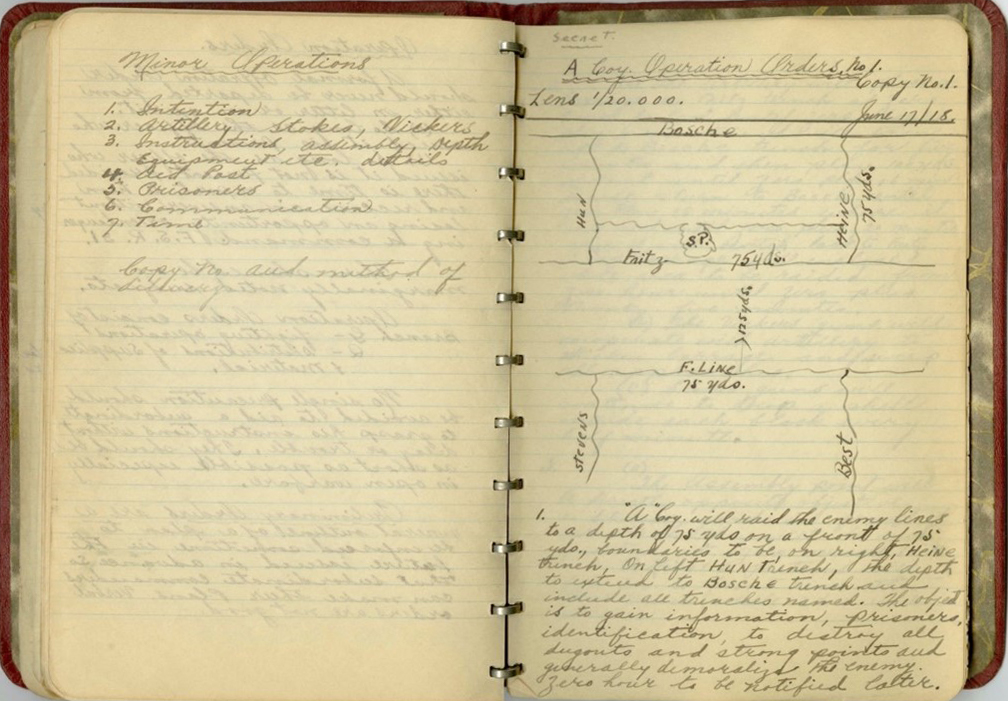 Minor Operations
1. Intention
2. Artillery, Stokes, Vickers
3. Instructions, assembly, depth
Equipment etc. details
4. Aid Post
5. Prisoners
6. Communication
7. Time
Copy No and method of
delivery
Secret.
A Coy. Operation Orders, No 1.
Copy No. 1.
Lens 1/20.000.
June 17/18.
Bosche
HUN
HEINE
75 yds.
S.P.
Fritz
75 yds.
125 yds.
F. LINE
75 yds.
STEVENS
Best
1. "A" Coy. will raid the enemy lines
to a depth of 75 yds on a front of 75
yds., boundaries to be, on right, HEINE
trench, On left HUN Trench, the depth
to extend to BOSCHE trench and
include all trenches named. The object
is to gain information, prisoners,
identification, to distroy all
dugouts and strong points and
generally demoralize the enemy.
Zero hour to be notified later.